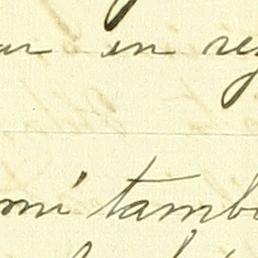 ar en re
mi tambi